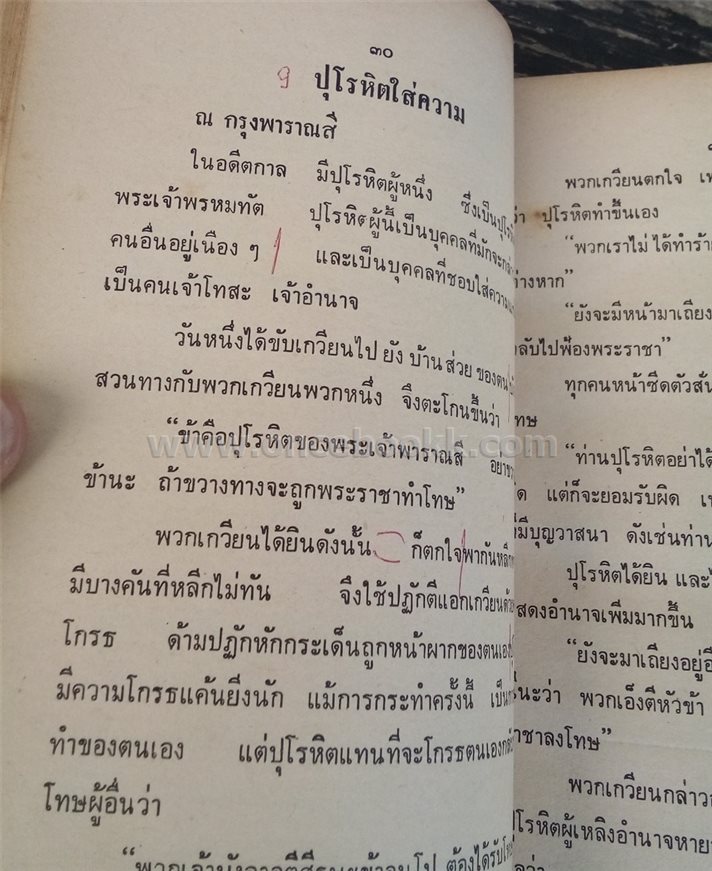 ๓๐
9 ปุโรหิตใส่ความ
ณ กรุงพาราณสี
ในอดีตกาล มีปุโรหิตผู้หนึ่ง ซึ่งเป็นปุโรหิต
พระเจ้าพรหมทัต ปุโรหิตผู้นี้เป็นบุคคลที่มักจะ
คนอื่นอยู่เนือง ๆ และเป็นบุคคลที่ชอบใส่ความ
เป็นคนเจ้าโทสะ เจ้าอำนาจ
วันหนึ่งได้ขับเกวียนไป ยัง บ้าน ส่วย ของตน
สวนทางกับพวกเกวียนพวกหนึ่ง จึงตะโกนขึ้นว่า
“ข้าคือปุโรหิตของพระเจ้าพาราณสี
ข้านะ ถ้าขวางทางจะถูกพระราชาทำโทษ”
พวกเกวียนได้ยินดังนั้น ก็ตกใจพากัน
มีบางคันที่หลีกไม่ทัน จึงใช้ปฏักตีแอกเกวียน
โกรธ ด้ามปฏักหักกระเด็นถูกหน้าผากของตนเอง
มีความโกรธแค้นยิ่งนัก แม้การกระทำครั้งนี้
ทำของตนเอง แต่ปุโรหิตแทนที่จะโกรธตนเอง
โทษผู้อื่นว่า
ต้องได้รับ
พวกเกวียนตกใจ
ว่า ปุโรหิตทำขึ้นเอง
“พวกเราไม่ ได้ทำ
ต่างหาก”
“ยังจะมีหน้ามาเถียง
กลับไปฟ้องพระราชา”
ทุกคนหน้าซีดตัวสั่น
“ท่านปุโรหิตอย่าได้
แต่ก็จะยอมรับผิด
มีบุญวาสนา ดังเช่นท่าน
ปุโรหิตได้ยิน และ
แสดงอำนาจเพิ่มมากขึ้น
“ยังจะมาเถียงอยู่
พวกเอ็งตีหัวข้า
ลงโทษ”
พวกเกวียนกล่าว
ปุโรหิตผู้เหลิงอำนาจ
www.onceebookk.com